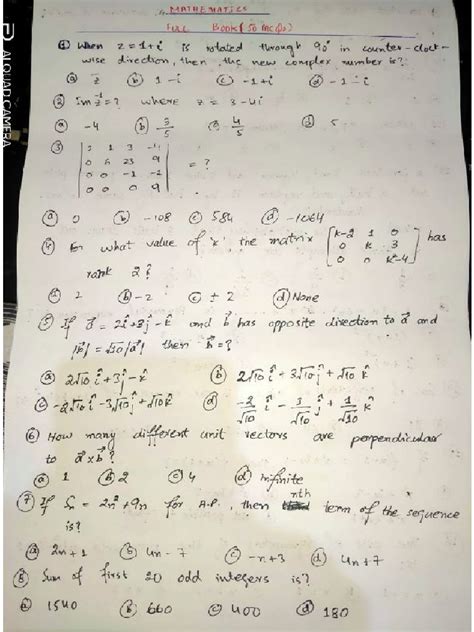 MATHEMATICS
FULL Book (50 MCQs)
① When z = 1+i is rotated through 90° in counter-clock-
wise direction, then the new complex number is?
ⓐ z̄ ⓑ 1-i ⓒ -1+i ⓓ -1-i
② im 1/z = ? where z = 3-4i
ⓐ -4 ⓑ 3/5 ⓒ 4/5 ⓓ 5
③
1 3
0 6 23 9
0 0 -1 -2 = ?
0 0 0 9
ⓐ 0 ⓑ -108 ⓒ 584 ⓓ -1064
④ what value of 'k', the matrix [k-2 1 0
0 k 3
0 0 k²-4] has
rank 2?
2 ⓑ -2 ⓒ ± 2 ⓓ None
⑤ If a⃗ = 2î+3ĵ-k̂ and b⃗ has opposite direction to a⃗ and
|b⃗| = √10|a⃗| then b⃗ = ?
ⓐ 2√10 î+3ĵ-k̂ ⓑ 2√10 î + 3√10 ĵ + √10 k̂
ⓒ -2√10 î -3√10 ĵ+√10 k̂ ⓓ -2/√10 î - 3/√10 ĵ + 1/√10 k̂
⑥ How many different unit vectors are perpendicular
to a⃗ x b⃗?
ⓐ 1 ⓑ 2 ⓒ 4 ⓓ infinite
⑦ If Sn = 2n²+9n for A.P., then nth term of the sequence
is?
ⓐ 2n+1 ⓑ 4n-7 ⓒ -n+3 ⓓ 4n+7
⑧ Sum of first 20 odd integers is?
ⓐ 1540 ⓑ 660 ⓒ 400 ⓓ 180
AI QUAD CAMERA